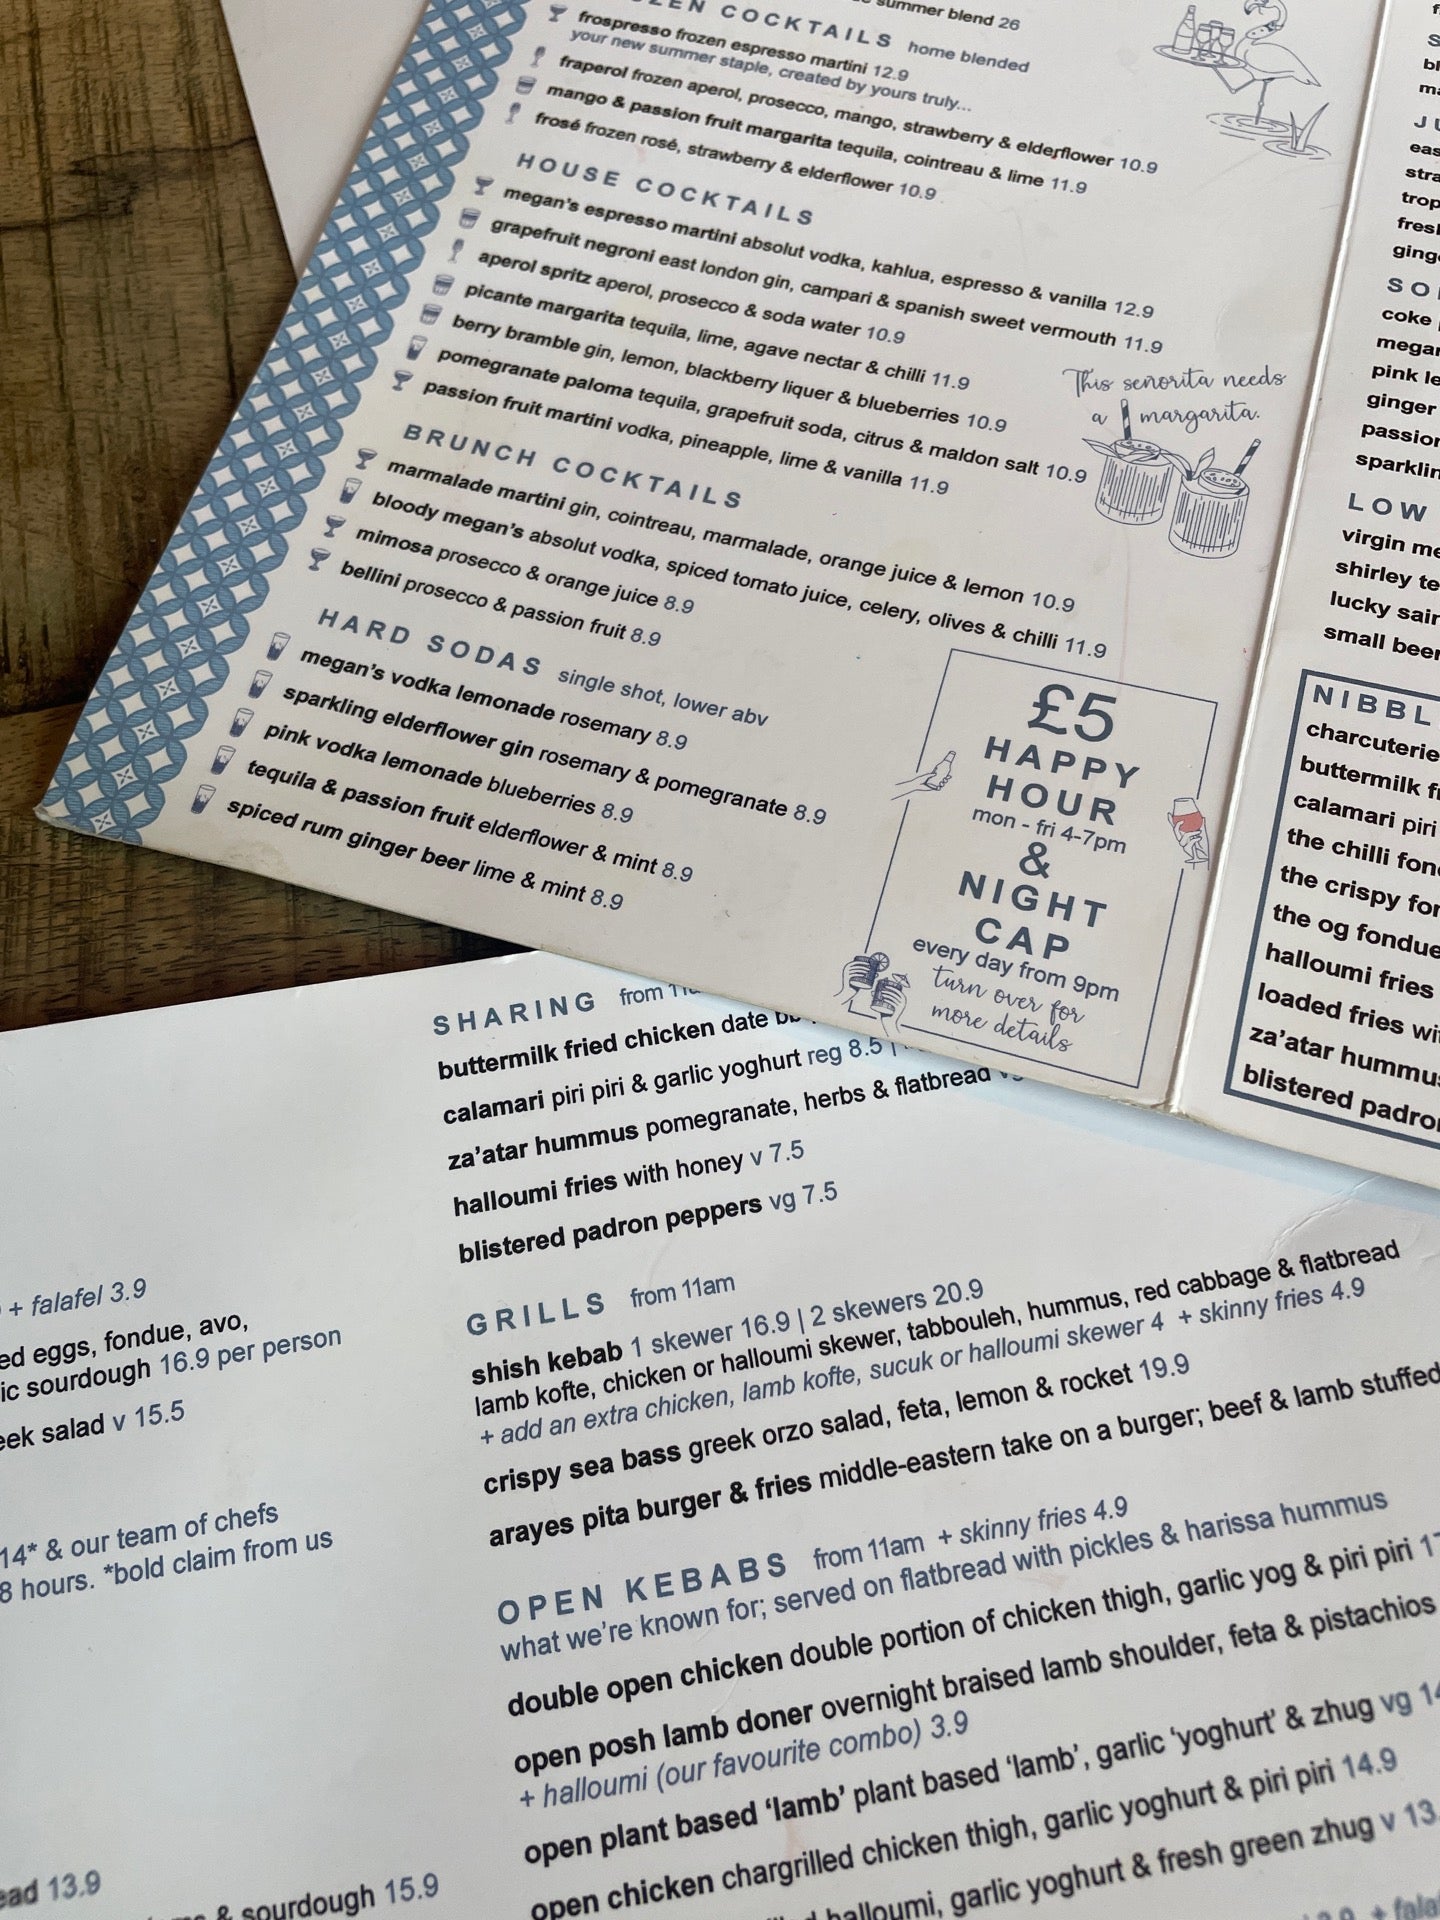 summer blend 26
COCKTAILS home blended
frospresso frozen espresso martini 12.9
your new summer staple, created by yours truly...
fraperol frozen aperol, prosecco, mango, strawberry & elderflower 10.9
mango & passion fruit margarita tequila, cointreau & lime 11.9
frosé frozen rosé, strawberry & elderflower 10.9
HOUSE COCKTAILS
megan's espresso martini absolut vodka, kahlua, espresso & vanilla 12.9
grapefruit negroni east london gin, campari & spanish sweet vermouth 11.9
aperol spritz aperol, prosecco & soda water 10.9
picante margarita tequila, lime, agave nectar & chilli 11.9
berry bramble gin, lemon, blackberry liquer & blueberries 10.9
pomegranate paloma tequila, grapefruit soda, citrus & maldon salt 10.9
passion fruit martini vodka, pineapple, lime & vanilla 11.9
This señorita needs
a margarita.
BRUNCH COCKTAILS
marmalade martini gin, cointreau, marmalade, orange juice & lemon 10.9
bloody megan's absolut vodka, spiced tomato juice, celery, olives & chilli 11.9
mimosa prosecco & orange juice 8.9
bellini prosecco & passion fruit 8.9
HARD SODAS single shot, lower abv
megan's vodka lemonade rosemary 8.9
sparkling elderflower gin rosemary & pomegranate 8.9
pink vodka lemonade blueberries 8.9
tequila & passion fruit elderflower & mint 8.9
spiced rum ginger beer lime & mint 8.9
£5
HAPPY
HOUR
mon - fri 4-7pm
&
NIGHT
CAP
every day from 9pm
turn over for
more details
coke
ginger
LOW
virgin
shirley
lucky
small beer
charcuterie
buttermilk
calamari piri
the chilli
the crispy
the og fondue
halloumi fries
loaded fries
za'atar
blistered
SHARING from
buttermilk fried chicken date
calamari piri piri & garlic yoghurt reg 8.5 |
za'atar hummus pomegranate, herbs & flatbread
halloumi fries with honey v 7.5
blistered padron peppers vg 7.5
GRILLS from 11am
shish kebab 1 skewer 16.9 | 2 skewers 20.9
lamb kofte, chicken or halloumi skewer, tabbouleh, hummus, red cabbage & flatbread
+ add an extra chicken, lamb kofte, sucuk or halloumi skewer 4 + skinny fries 4.9
crispy sea bass greek orzo salad, feta, lemon & rocket 19.9
arayes pita burger & fries middle-eastern take on a burger; beef & lamb stuffed
OPEN KEBABS from 11am + skinny fries 4.9
what we're known for; served on flatbread with pickles & harissa hummus
double open chicken double portion of chicken thigh, garlic yog & piri piri
open posh lamb doner overnight braised lamb shoulder, feta & pistachios
+ halloumi (our favourite combo) 3.9
open plant based 'lamb' plant based 'lamb', garlic 'yoghurt' & zhug vg
open chicken chargrilled chicken thigh, garlic yoghurt & piri piri 14.9
halloumi, garlic yoghurt & fresh green zhug v
+ falafel 3.9
eggs, fondue, avo,
sourdough 16.9 per person
salad v 15.5
14* & our team of chefs
8 hours. *bold claim from us
13.9
& sourdough 15.9